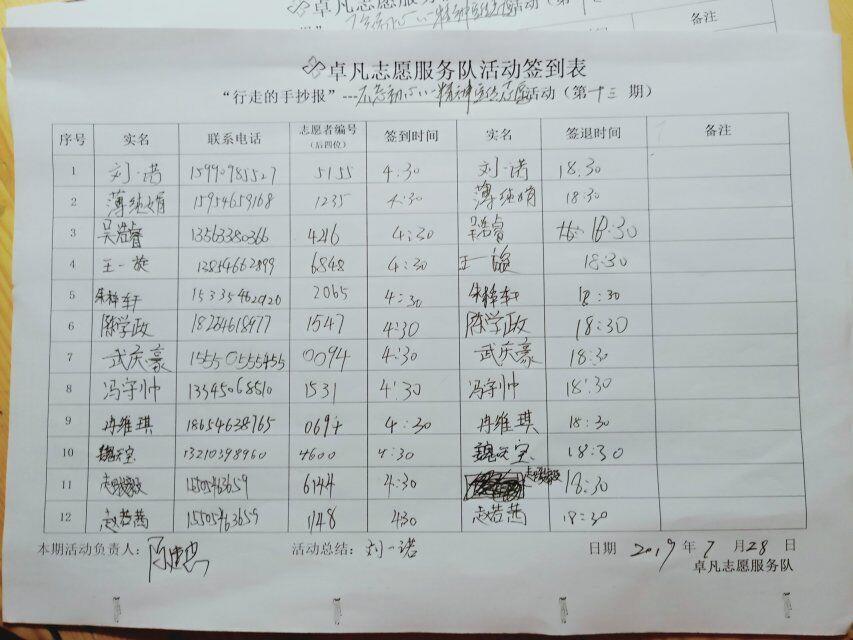 卓凡志愿服务队活动
活动（第十
备注
卓凡志愿服务队活动签到表
“行走的手抄报”---不忘初心 精神宣传志愿活动（第十三 期）
序号 实名 联系电话 志愿者编号（后四位） 签到时间 实名 签退时间 备注
1 刘一诺 15990985527 5155 4:30 刘一诺 18:30
2 薄纯娟 15954659168 1235 4:30 薄纯娟 18:30
3 吴浩睿 13563380366 4216 4:30 吴浩睿 18:30
4 王一旋 13854662899 6848 4:30 王一旋 18:30
5 朱梓轩 15335462920 2065 4:30 朱梓轩 18:30
6 陈学政 18254618977 1547 4:30 陈学政 18:30
7 武庆豪 15550555455 0094 4:30 武庆豪 18:30
8 冯宇帅 13345068510 1531 4:30 冯宇帅 18:30
9 冉维琪 18654638765 4:30 冉维琪 18:30
10 魏天宝 13210398960 4600 4:30 魏天宝 18:30
11 6144 4:30 18:30
12 赵若茜 15505463659 1148 430 赵若茜 18:30
本期活动负责人： 活动总结：刘一诺 日期 2019 年 7 月 28 日
卓凡志愿服务队